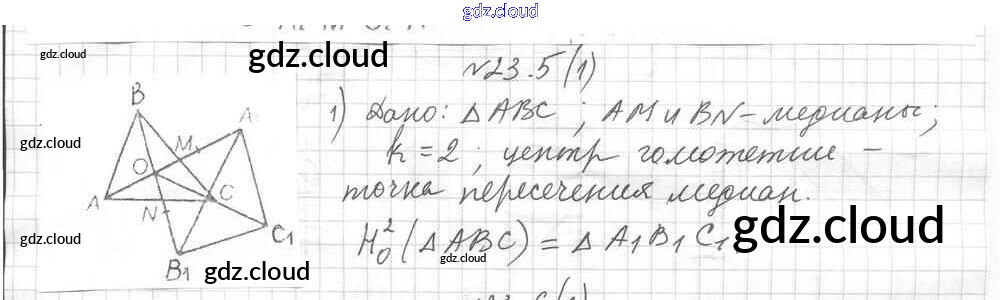 gdz.cloud
gdz.cloud
gdz.cloud
N23.5(1)
1) Дано: Δ ABC ; AM и BN - медианы;
k = 2 ; центр гомотетии -
точка пересечения медиан.
H₀²(Δ ABC) = Δ A₁B₁C₁
B
A
M
O
A
N
C
C₁
B₁
gdz.cloud
gdz.cloud
gdz.cloud
gdz.cloud
gdz.cloud